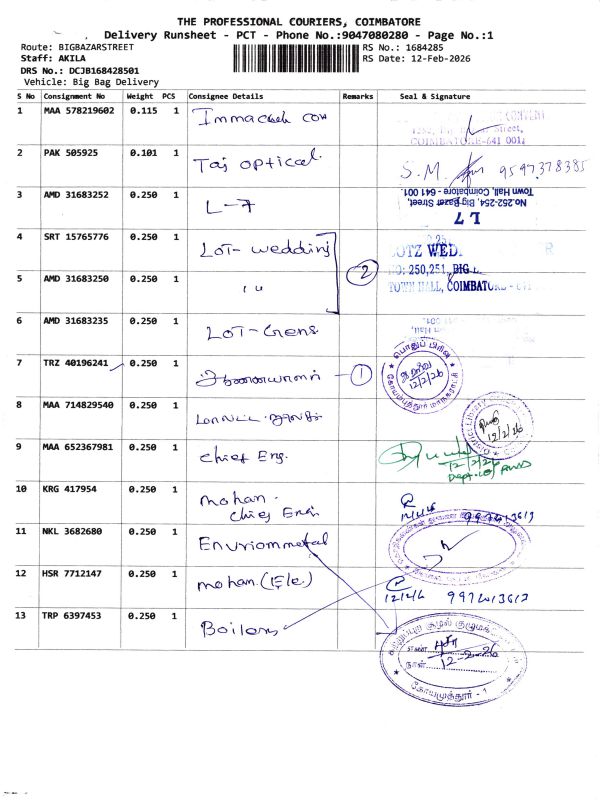 THE PROFESSIONAL COURIERS, COIMBATORE
Delivery Runsheet - PCT - Phone No.:9047080280 - Page No.:1
Route: BIGBAZARSTREET
RS No.: 1684285
Staff: AKILA
RS Date: 12-Feb-2026
DRS No.: DCJB168428501
Vehicle: Big Bag Delivery
S No Consignment No Weight PCS Consignee Details Remarks Seal & Signature
1 MAA 578219602 0.115 1
Street,
COIMBATORE-641 001.
2 PAK 505925 0.101 1 Taj optical S.M. 9597378385
3 AMD 31683252 0.250 1 L-7
L 7
No.252-254, Big Bazer Street,
Town Hall, Coimbatore - 641 001.
4 SRT 15765776 0.250 1 LOT- wedding
NO: 250,251, BIG
5 AMD 31683250 0.250 1 " 2
TOWN HALL, COIMBATORE -
6 AMD 31683235 0.250 1 LOT-Gens
7 TRZ 40196241 0.250 1 1
பொதுப் பிரிவு
12/2/26
8 MAA 714829540 0.250 1
12/2/26
9 MAA 652367981 0.250 1 Chief Eng.
12/2/26
10 KRG 417954 0.250 1 mohan. Chief Eng.
11 NKL 3682680 0.250 1 Envriommetal
12 HSR 7712147 0.250 1 mohan.(Ele)
12/2/26
13 TRP 6397453 0.250 1 Boilers
நாள்
12-2-26
கோயமுத்தூர் - 1